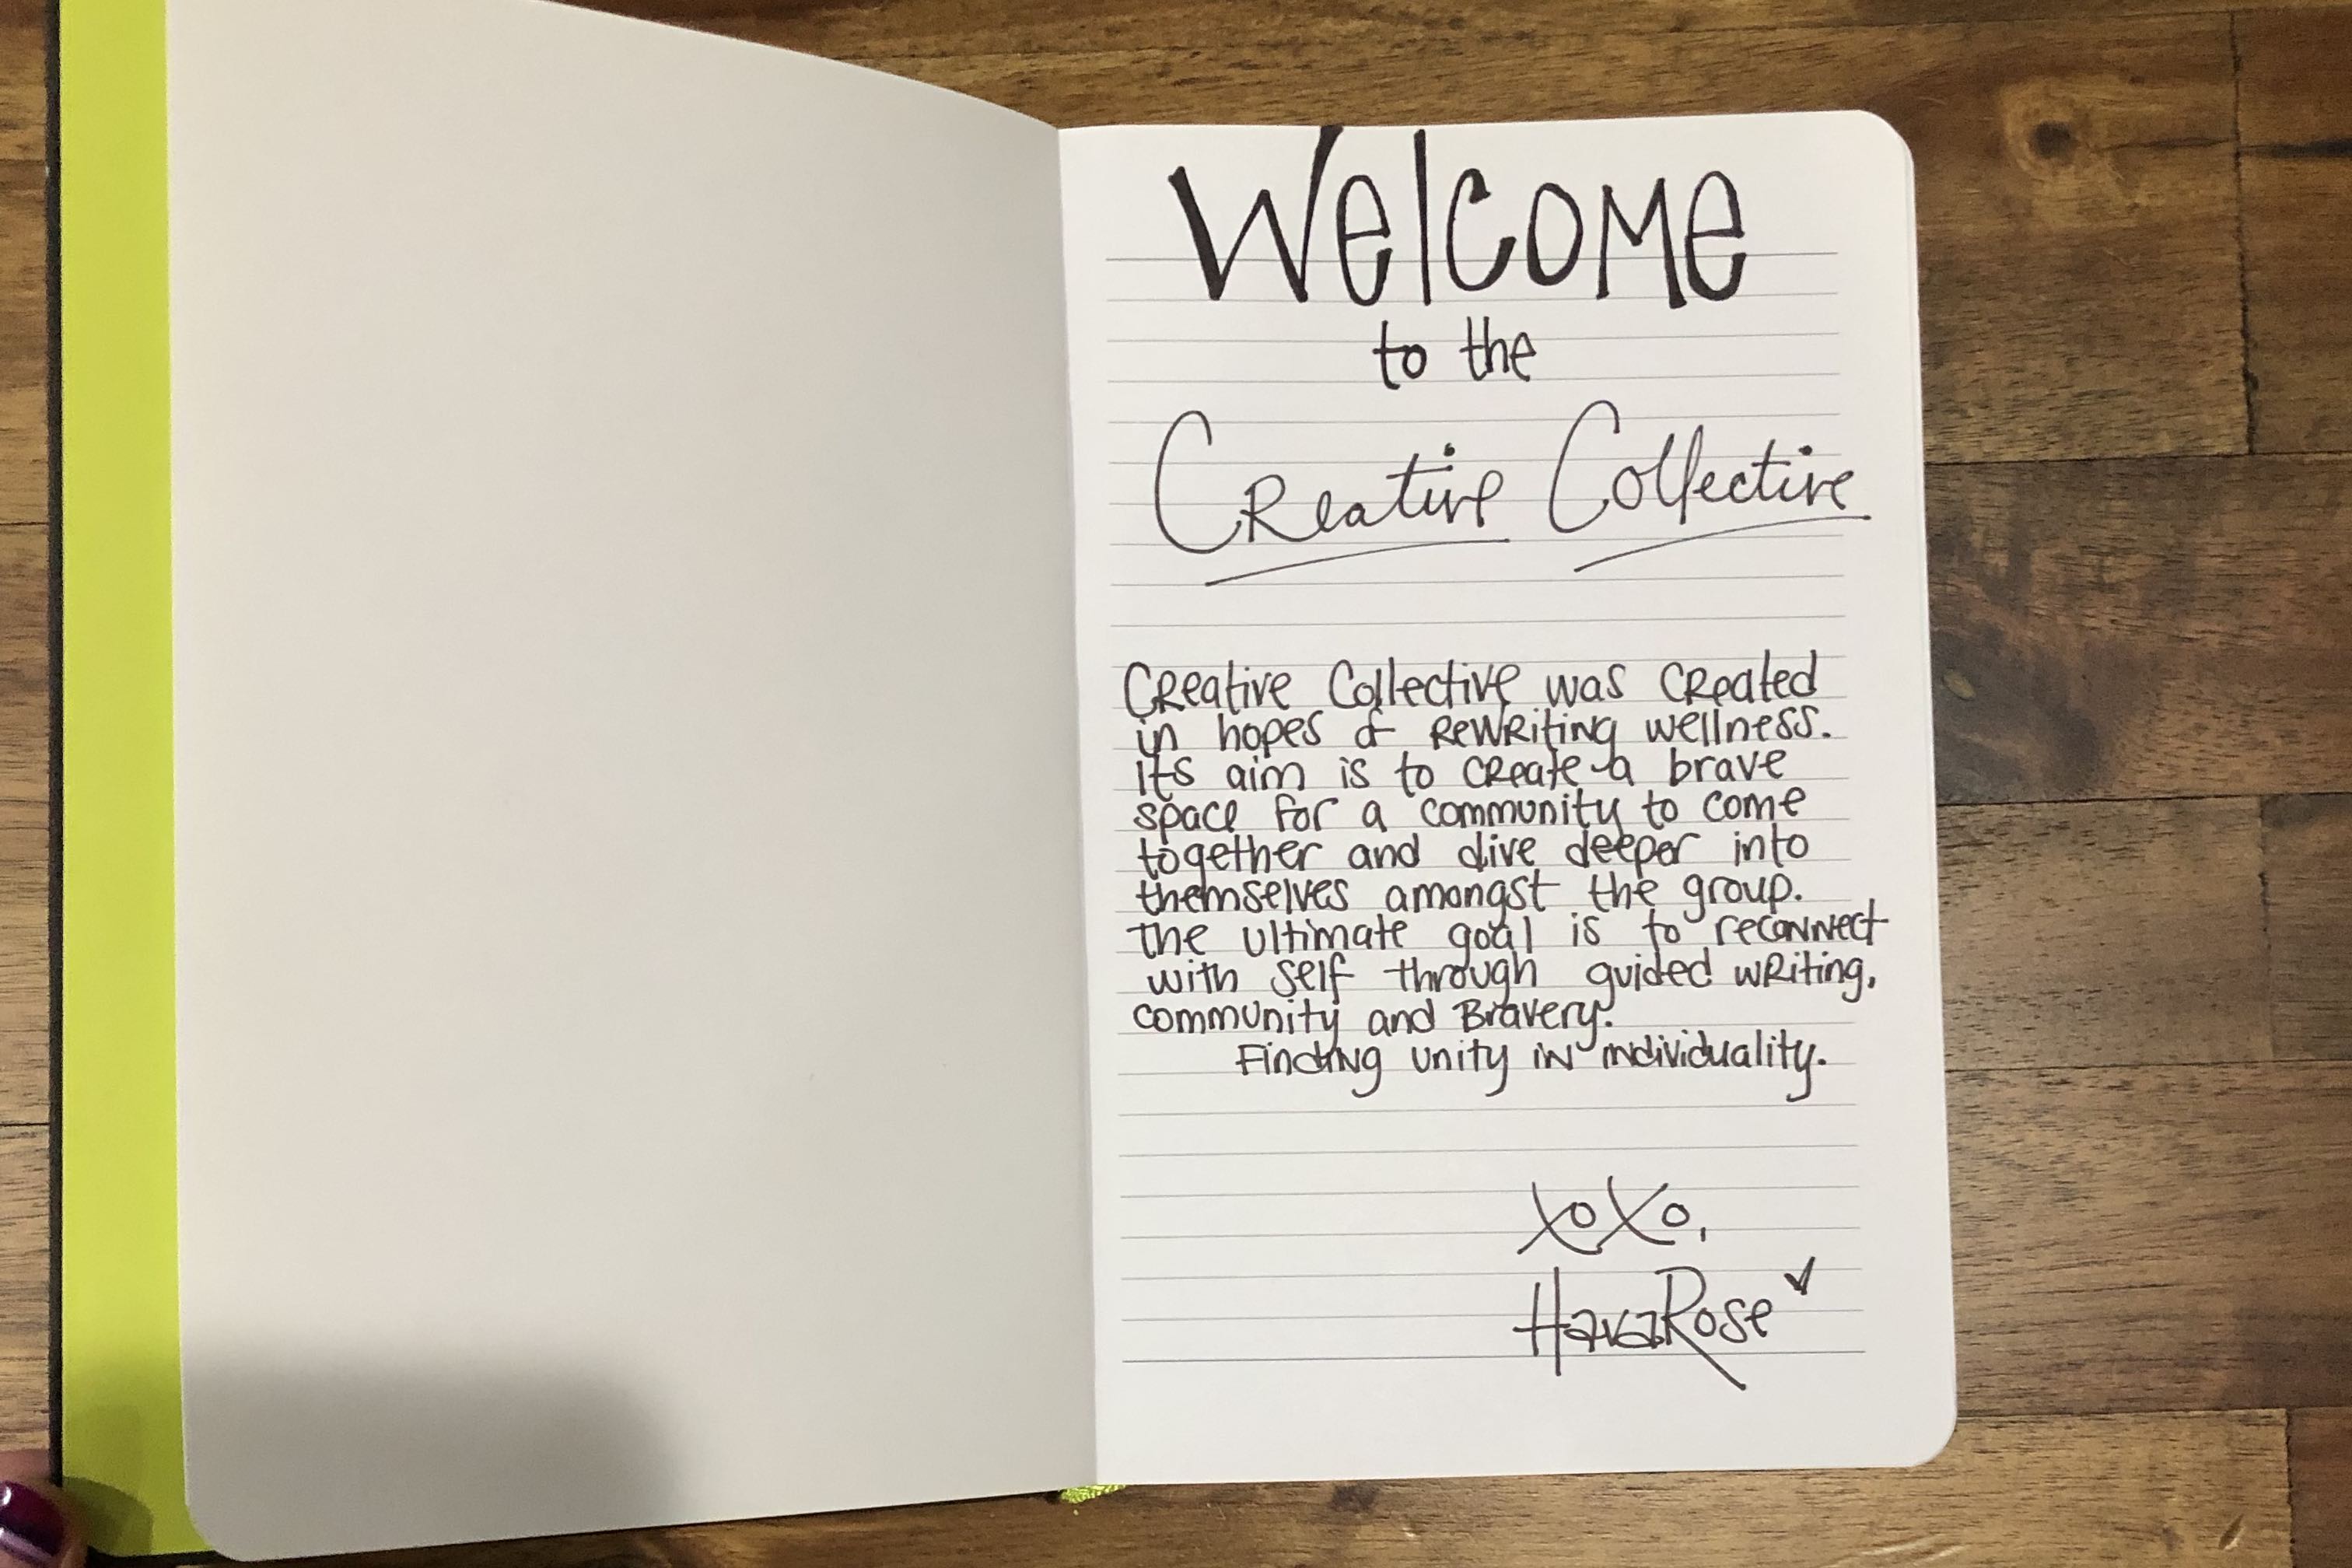 Welcome
to the
Creative Collective
Creative Collective was created
in hopes of rewriting wellness.
its aim is to create a brave
space for a community to come
together and dive deeper into
themselves amongst the group.
the ultimate goal is to reconnect
with self through guided writing,
community and Bravery.
Finding unity in individuality.
XoXo,
HavaRose